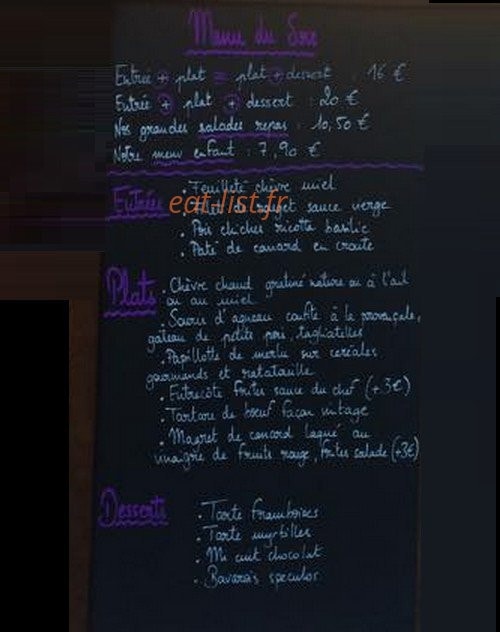 Menu du Soir
Entrée + plat = plat + dessert : 16 €
Entrée + plat + dessert : 20 €
Nos grandes salades repas : 10,50 €
Notre menu enfant : 7,90 €
Entrées
. Feuilleté chèvre miel
eat-list.fr
. Filet de rouget sauce vierge
. Pois chiches ricotta basilic
. Paté de canard en croute
Plats
. Chèvre chaud gratiné nature ou à l'ail
ou au miel
. Souris d'agneau confite à la provençale,
gateau de petits pois, tagliatelles
. Papillotte de merlu sur céréales
gourmandes et ratatouille
. Entrecôte frites sauce du chef (+3€)
. Tartare de boeuf façon vintage
. Magret de canard laqué au
vinaigre de fruits rouge, frites salade (+3€)
Desserts
. Tarte framboises
. Tarte myrtilles
. Mi cuit chocolat
. Bavarois speculos